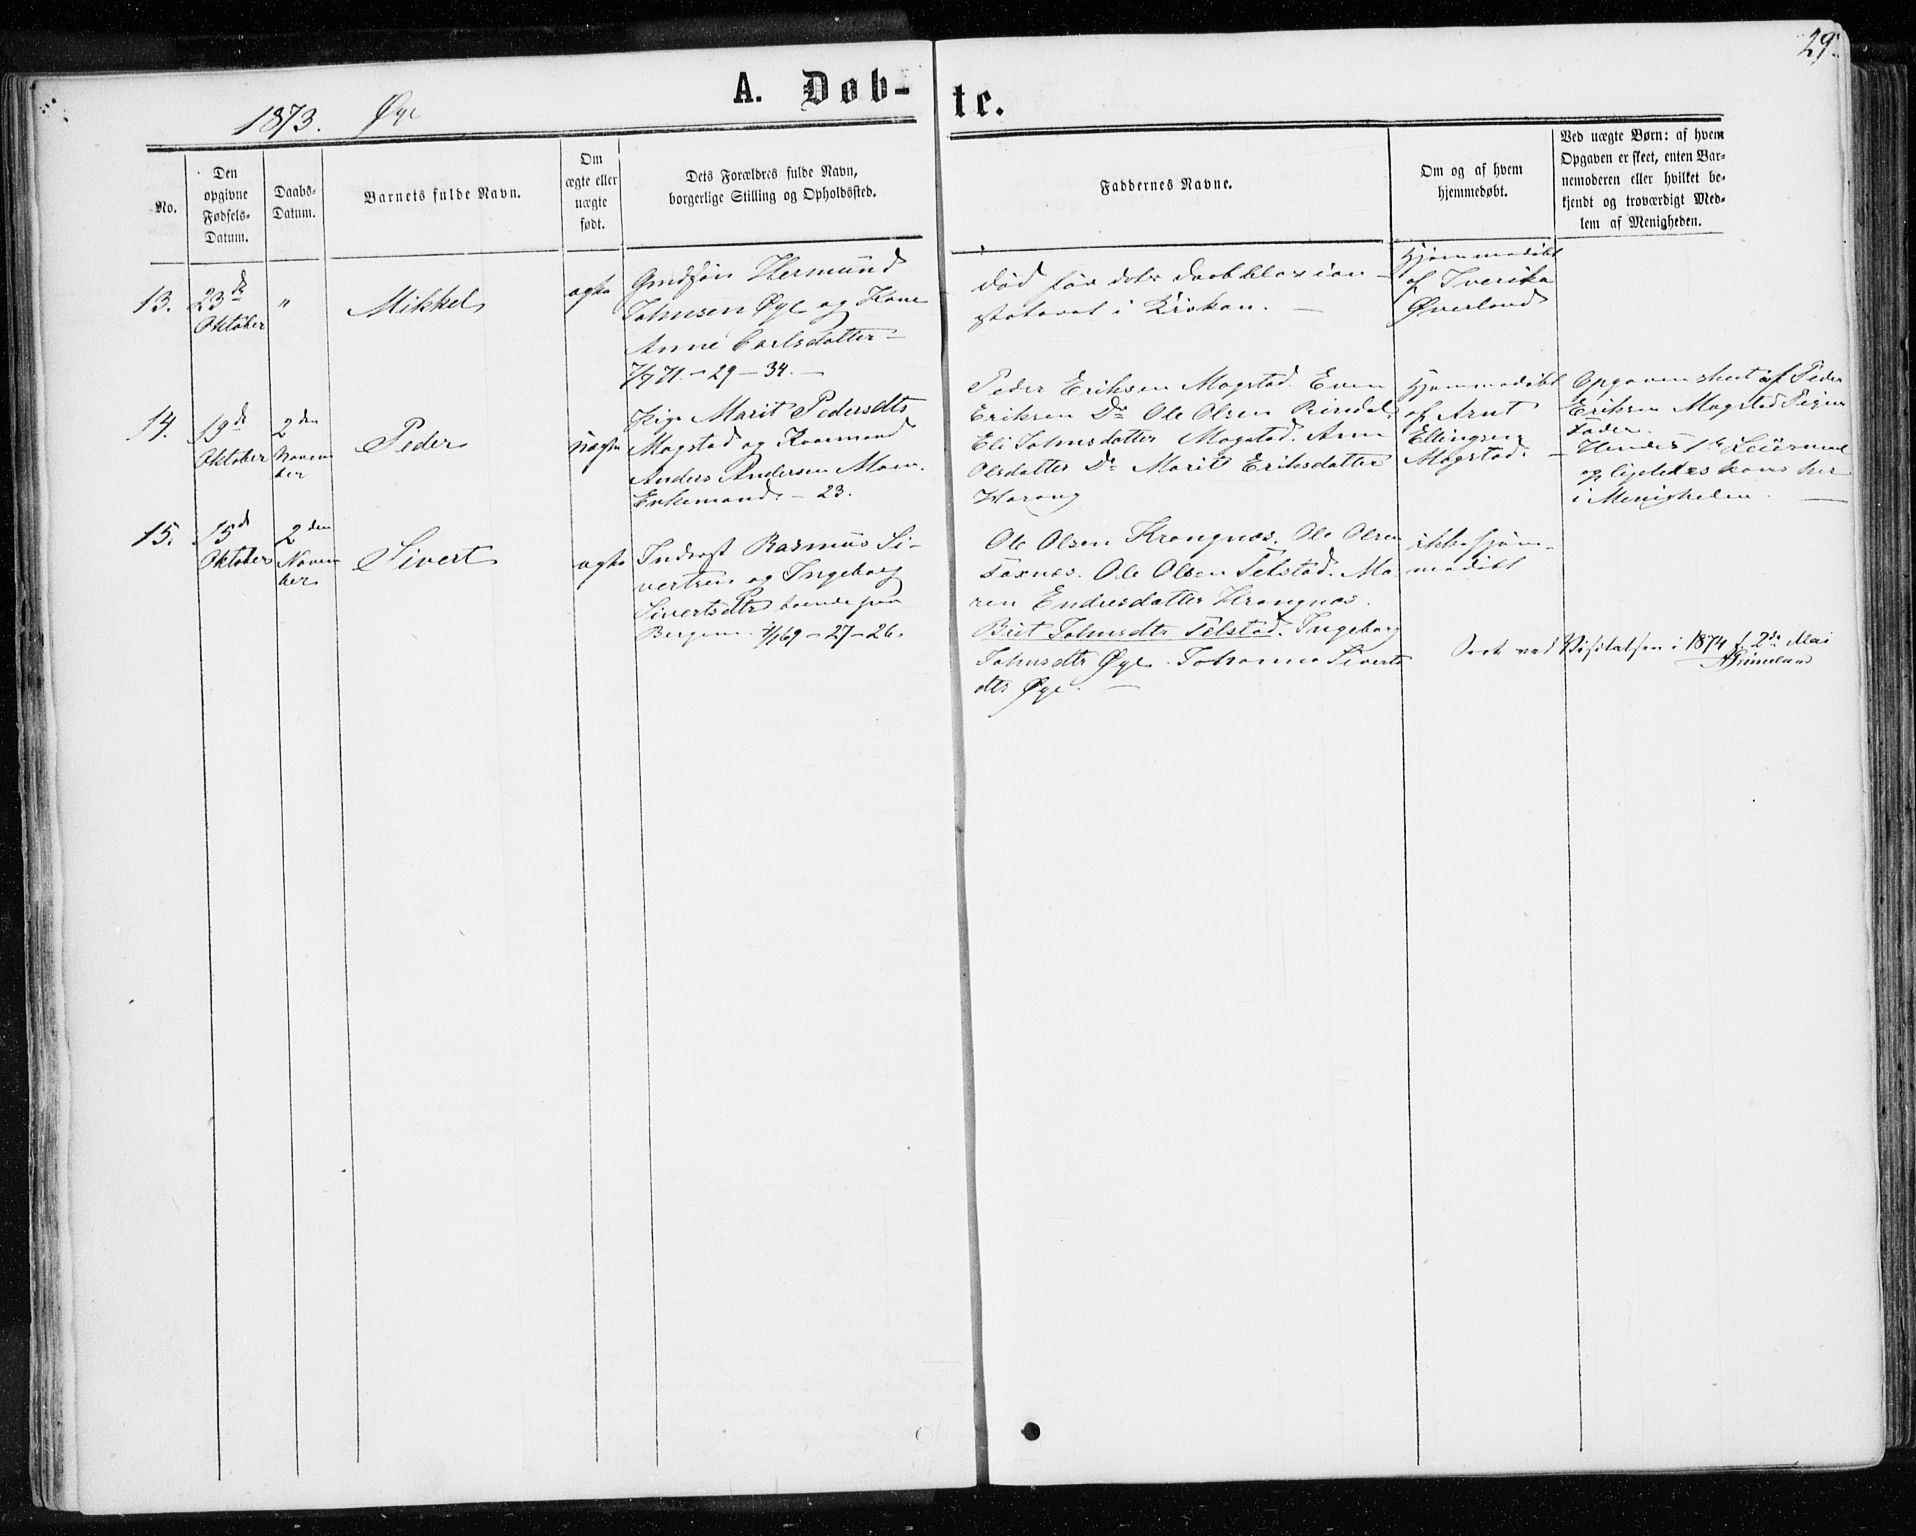 29.
1873. Øye
A. Døb-te.
No.
Den
opgivne
Fødsels-
Datum.
Daabs-
Datum.
Barnets fulde Navn.
Om
ægte eller
uægte
født.
Dets Forældres fulde Navn,
borgerlige Stilling og Opholdssted.
Faddernes Navne.
Om og af hvem
hjemmedøbt.
Ved uægte Børn: af hvem
Opgaven er skeet, enten Bar-
nemoderen eller hvilket be-
kjendt og troværdigt Med-
lem af Menigheden.
13.
23de
Oktober
"
Mikkel
ægte
Hermund
Johnsen Øye og Kone
Anne Carlsdatter -
7/7 71. - 29 - 34. -
død før dets
i Kirken. -
Hjemmedøbt
af
Øverland
14.
19de
Oktober
2den
Novem
ber
Peder
uægte
Pige Marit Pedersdtr
Magstad og
Anders Andersen Moen.
Enkemand. - 23.
Peder Eriksen Magstad. Even
Eriksen Do Ole Olsen Rindal.
Eli Johnsdatter Magstad. Ann
Olsdatter Do Marit Eriksdatter
Harang
Hjemmedøbt
af Arnt
Ellingsen
Magstad. -
Opgaven skeet af Peder
Eriksen Magstad Pigens
Fader.
Hendes 1e Leiermaal
og ligeledes hans her
i Menigheden. -
15.
15de
Oktober
2den
Novem
ber
Sivert
ægte
Inderst Rasmus Si-
vertsen og Ingeborg
Sivertsdtr boende paa
Bergem. 69 - 27 - 26.
Ole Olsen Krangnæs. Ole Olsen
Foxnæs. Ole Olsen Telstad. Ma-
ren Endresdatter Krangnæs.
Brit Johnsdtr Telstad. Ingeborg
Johnsdtr Øye. Johanna Siverts
dtr Øye. -
ikke hjem-
medøbt
Seet ved Visitatsen i 1874 d. 2de Mai
Grimelund